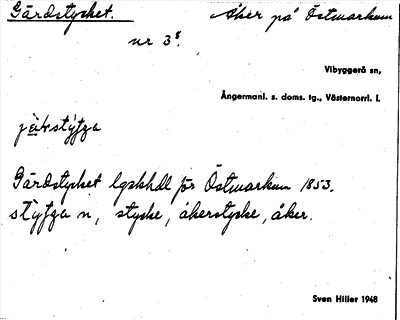 Gärdstycket. Åker på Östmarkum
nr 3⁸.
Vibyggerå sn,
Ångermanl. s. doms. tg., Västernorrl. l.
Gärdstycket lgskhdl för Östmarkum 1853.
n, stycke, åkerstycke, åker.
Sven Hiller 1948